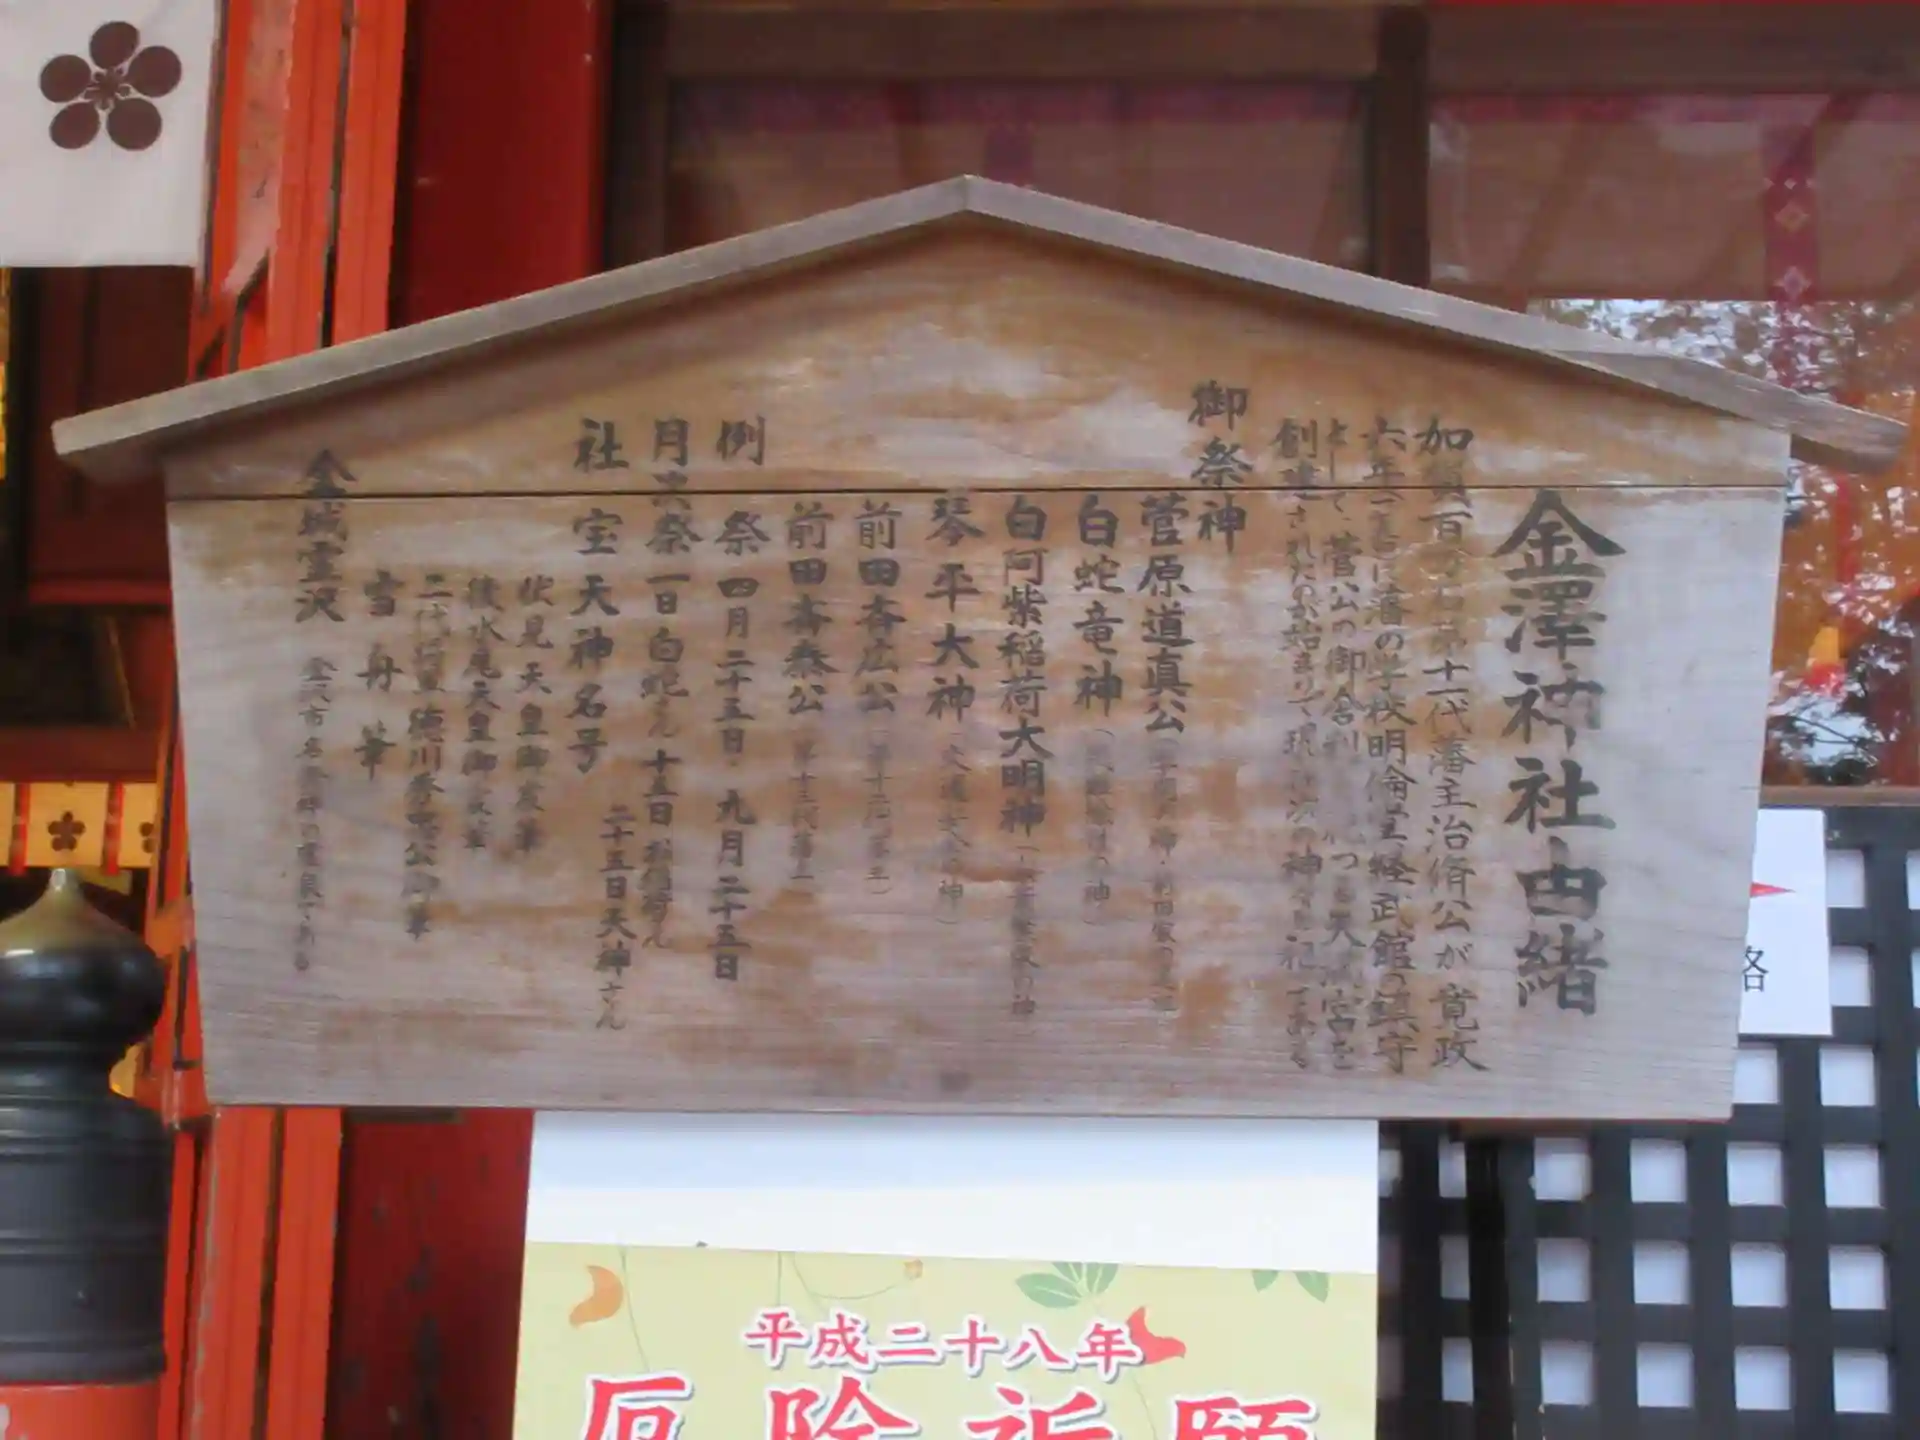 金澤神社由緒
加賀百万石第十一代藩主治脩公が寛政
六年に藩の学校明倫堂経武館の鎮守
として、菅公の御舎利 天満宮を
創建されたのが始まりで現在次の神々を祀てある
御祭神
菅原道真公
白蛇竜神
白阿紫稲荷大明神
琴平大神
前田斉広公
前田斉泰公
例祭 四月二十五日・九月二十五日
月次祭 一日白蛇さん 十五日お稲荷さん
二十五日天神さん
社宝 天神名号
伏見天皇御宸筆
後水尾天皇御宸筆
二代将軍 徳川秀忠公御筆
雪舟筆
金城霊沢 金沢市名発祥の霊泉である
平成二十八年
厄除祈願